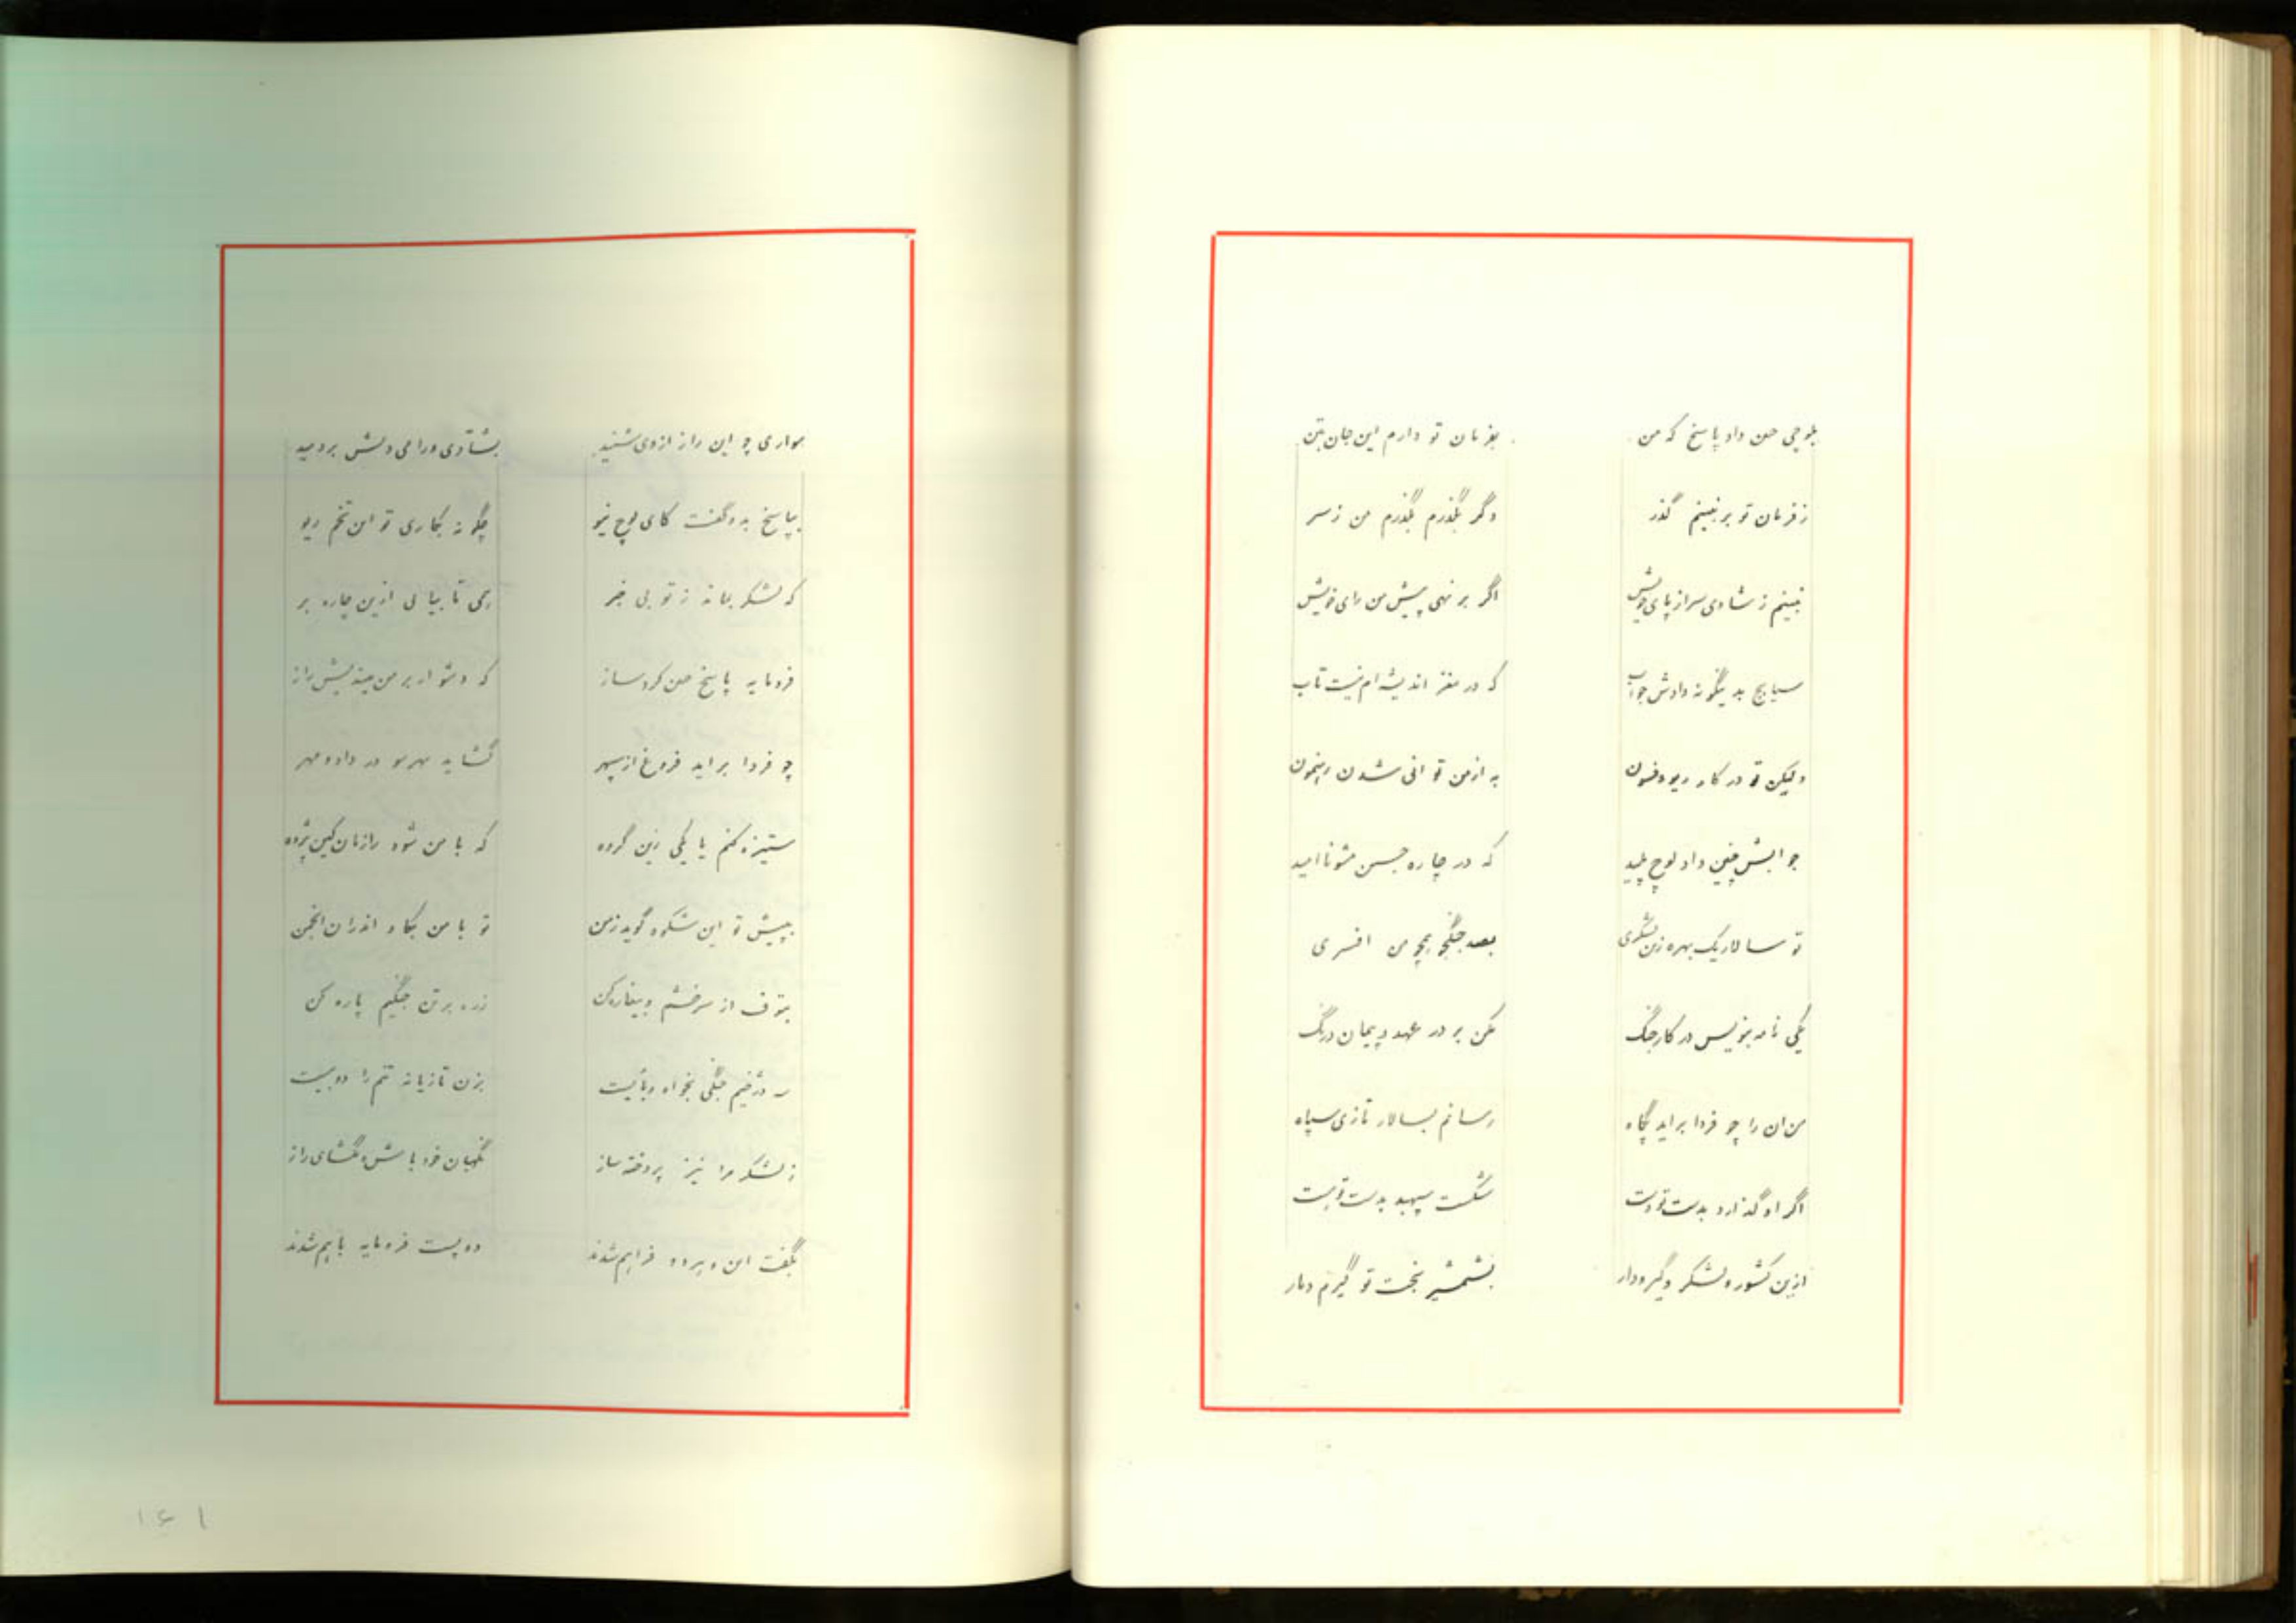 بلوچی چنین داد پاسخ که من بفرمان تو دارم این جان بتن
ز فرمان تو بر نبینم گذر وگر بگذرم بگذرم من ز سر
نبینم ز شادی سر از پای خویش اگر بر نهی پیش من رای خویش
بدینگونه دادش جواب که در مغز اندیشه ام نیست تاب
ولیکن تو در کار ریو و فسون به از من توانی شدن رهنمون
جوابش چنین داد لوچ پلید که در چاره جستن مشو ناامید
تو سالار یک بهره زین لشکری بصد جنگجو همچو من افسری
یکی نامه بنویس در کار جنگ مکن بر در عهد و پیمان درنگ
من ان را چو فردا براید پگاه رسانم بسالار تازی سپاه
اگر او گذارد بدست تو دست شکست سپهبد بدست تو است
ازین کشور و لشکر و گیرودار بشمشیر بخت تو گیرم دمار
سواری چو این راز ازوی شنید بشادی ورا می دلش بردمید
بپاسخ بدو گفت کای لوچ نیو چگونه بکاری تو این تخم ریو
که لشکر بماند ز تو بی خبر همی تا بیابی ازین چاره بر
فرومایه پاسخ چنین کرد ساز که دشوار بر من میندیش راز
چو فردا براید فروغ از سپهر گشاید بهر سو در داد و مهر
ستیزه کنم با یکی زین گروه که با من شود رازمان کین پژوه
بپیش تو این شکوه گوید ز من تو با من بگاه اندران انجمن
بتوف از سر خشم و بیغاره کن زره بر تن جنگیم پاره کن
دژخیم جنگی بخواه و بایست بزن تازیانه تنم را دویست
ز لشکر مرا نیز پردخته ساز نگهبان خود باش و مگشای راز
بگفت این و هر دو فراهم شدند دو پست فرومایه با هم شدند
۱۶۱